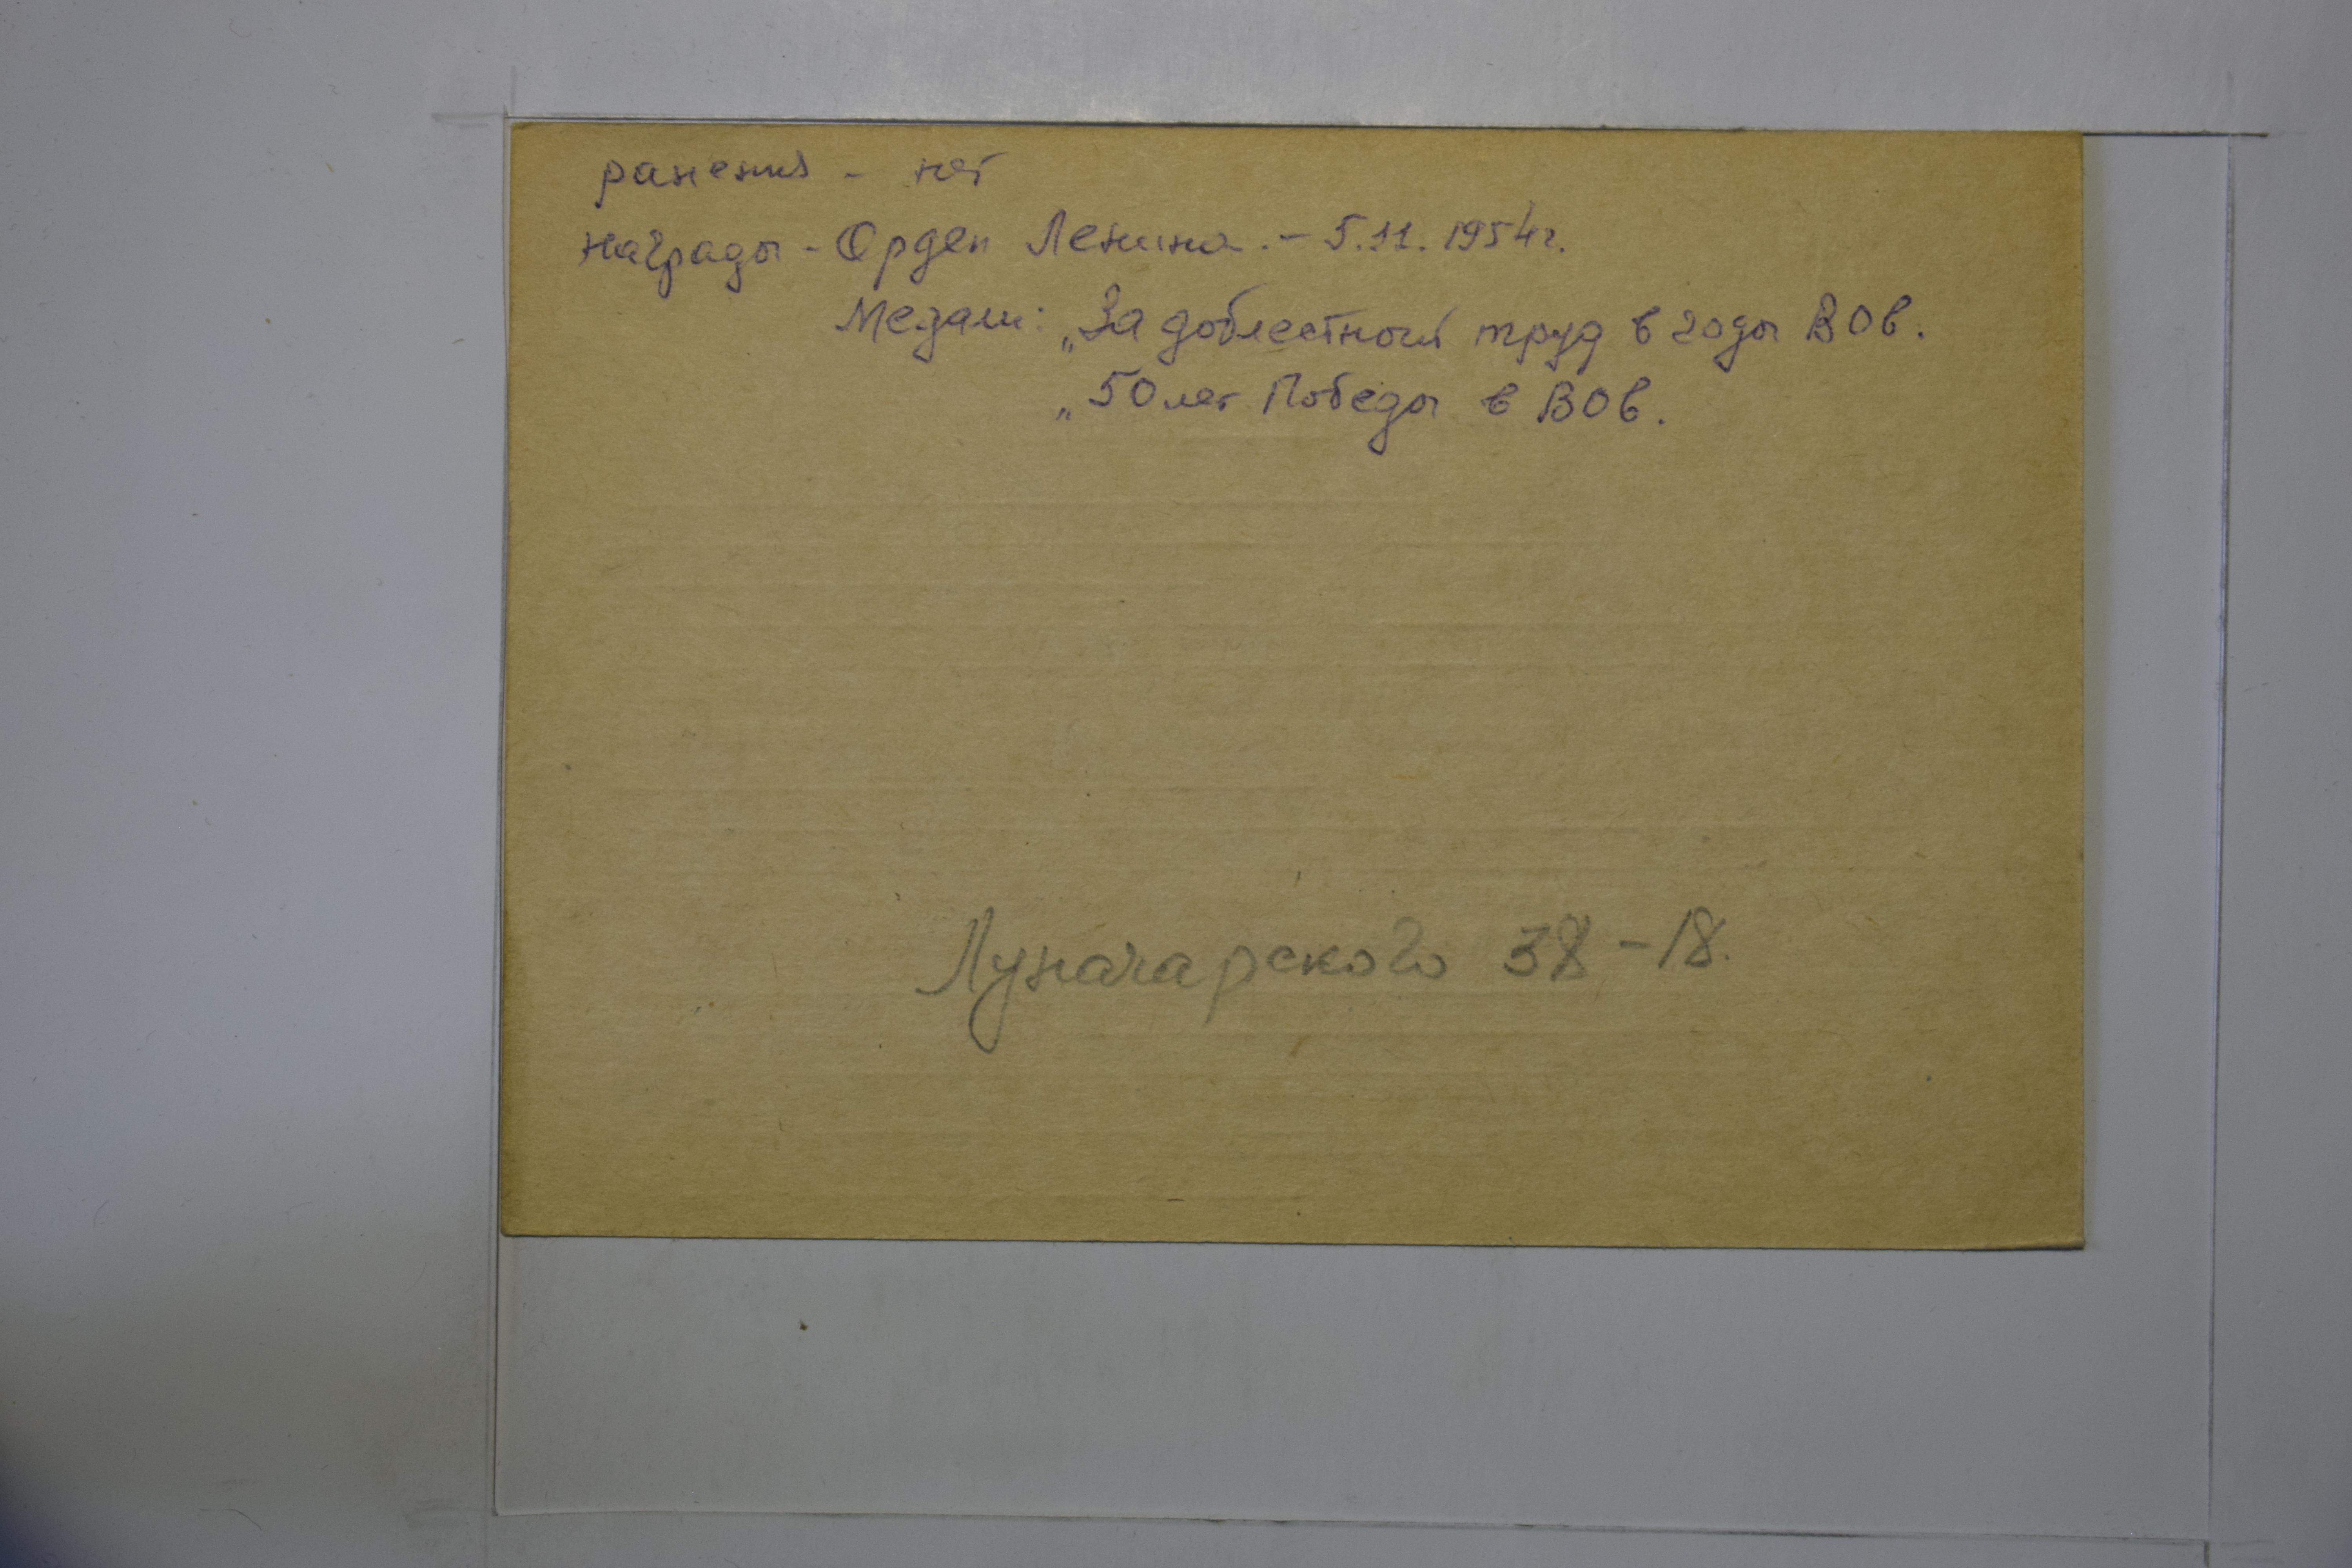 ранения - нет
награды - Орден Ленина. - 5.11.1954г.
Медали: „За доблестный труд в годы ВОв.
„50 лет Победы в ВОв.
Луначарского 38-18.